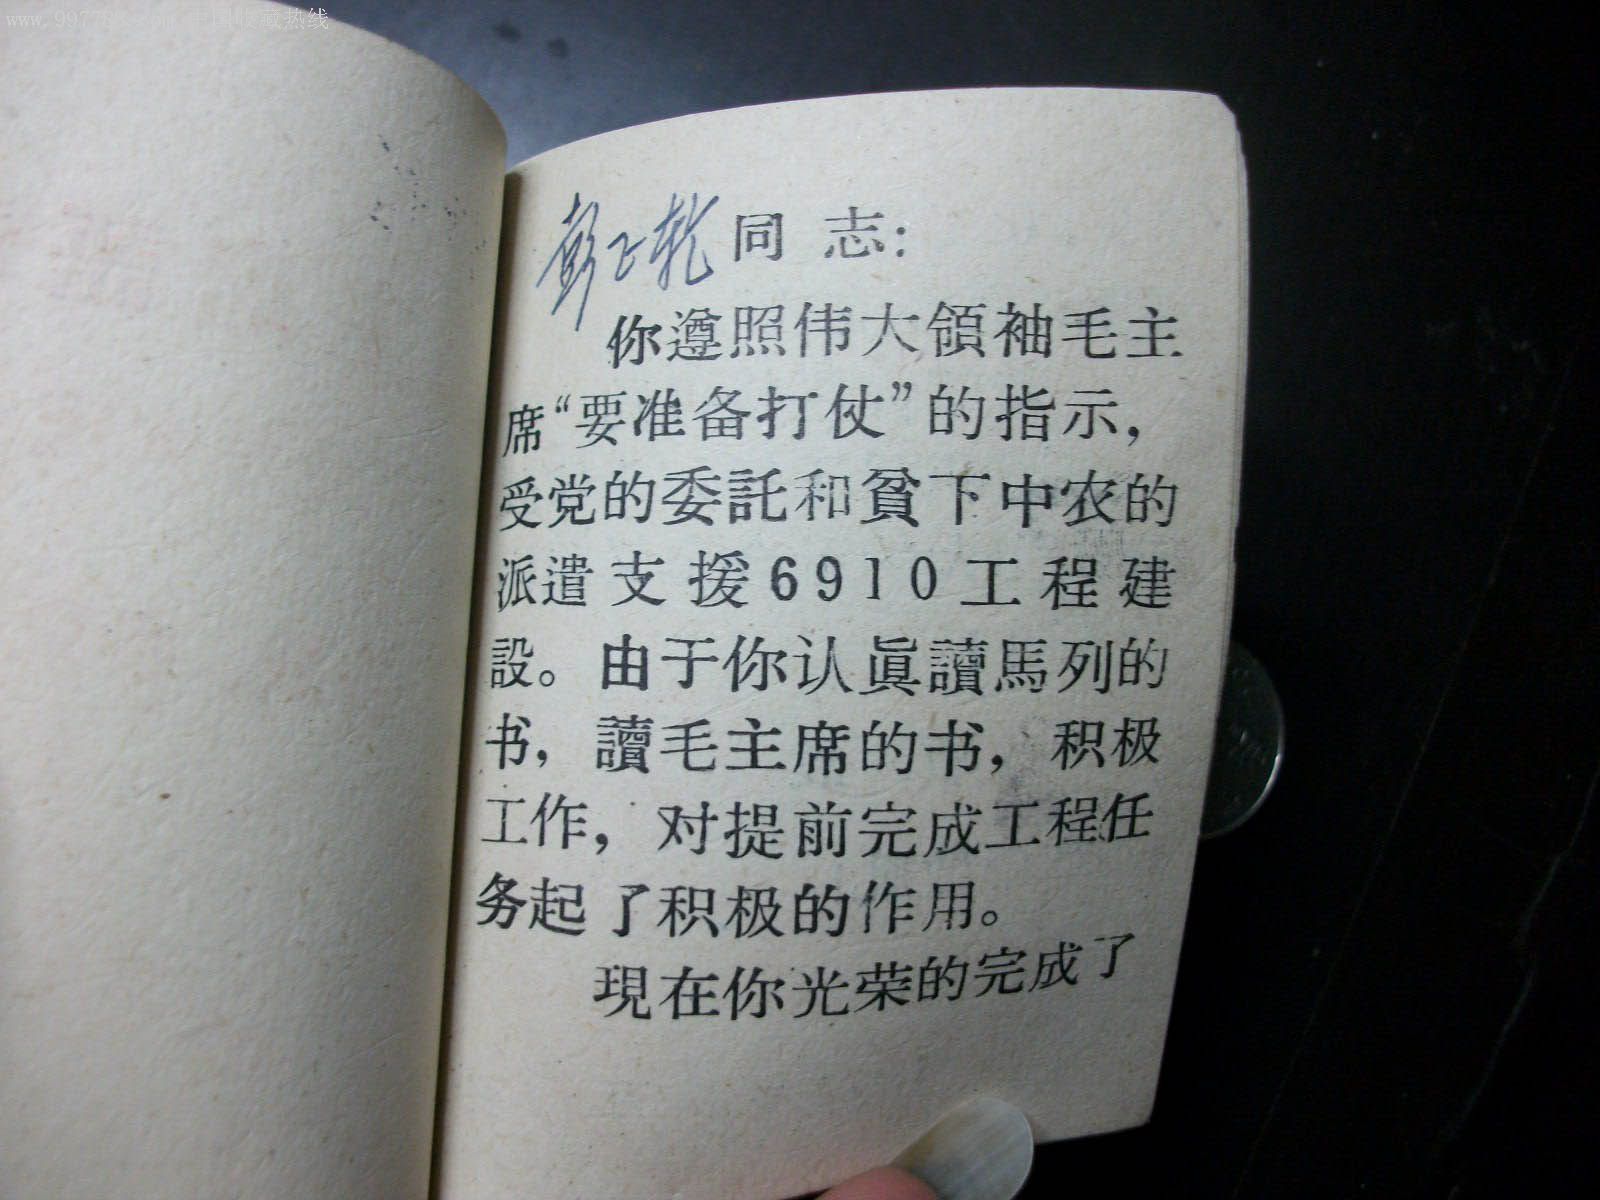 www.997788.com 中国收藏热线
彭正乾同志：
你遵照伟大領袖毛主
席“要准备打仗”的指示，
受党的委託和貧下中农的
派遣支援6910工程建
設。由于你认眞讀馬列的
书，讀毛主席的书，积极
工作，对提前完成工程任
务起了积极的作用。
現在你光荣的完成了